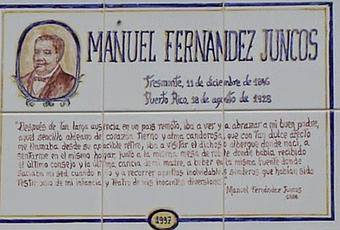 MANUEL FERNANDEZ JUNCOS
Tresmonte, 11 de diciembre de 1846
Puerto Rico, 18 de agosto de 1928
"Después de tan larga ausencia en un país remoto, iba a ver y a abrazar a mi buen padre,
aquel sencillo aldeano de corazón tierno y alma candorosa, que con tan dulce afecto
me llamaba desde su apacible retiro, iba a visitar el dichoso albergue donde nací, a
sentarme en el mismo hogar, junto a la misma mesa de donde había recibido
el último consejo y la última caricia de mi madre, a beber en la misma fuente donde
saciaba mi sed cuando niño y a recorrer aquellos inolvidables senderos que habían sido
testimonio de mi infancia y teatro de mis inocentes diversiones"
Manuel Fernández Juncos
1997